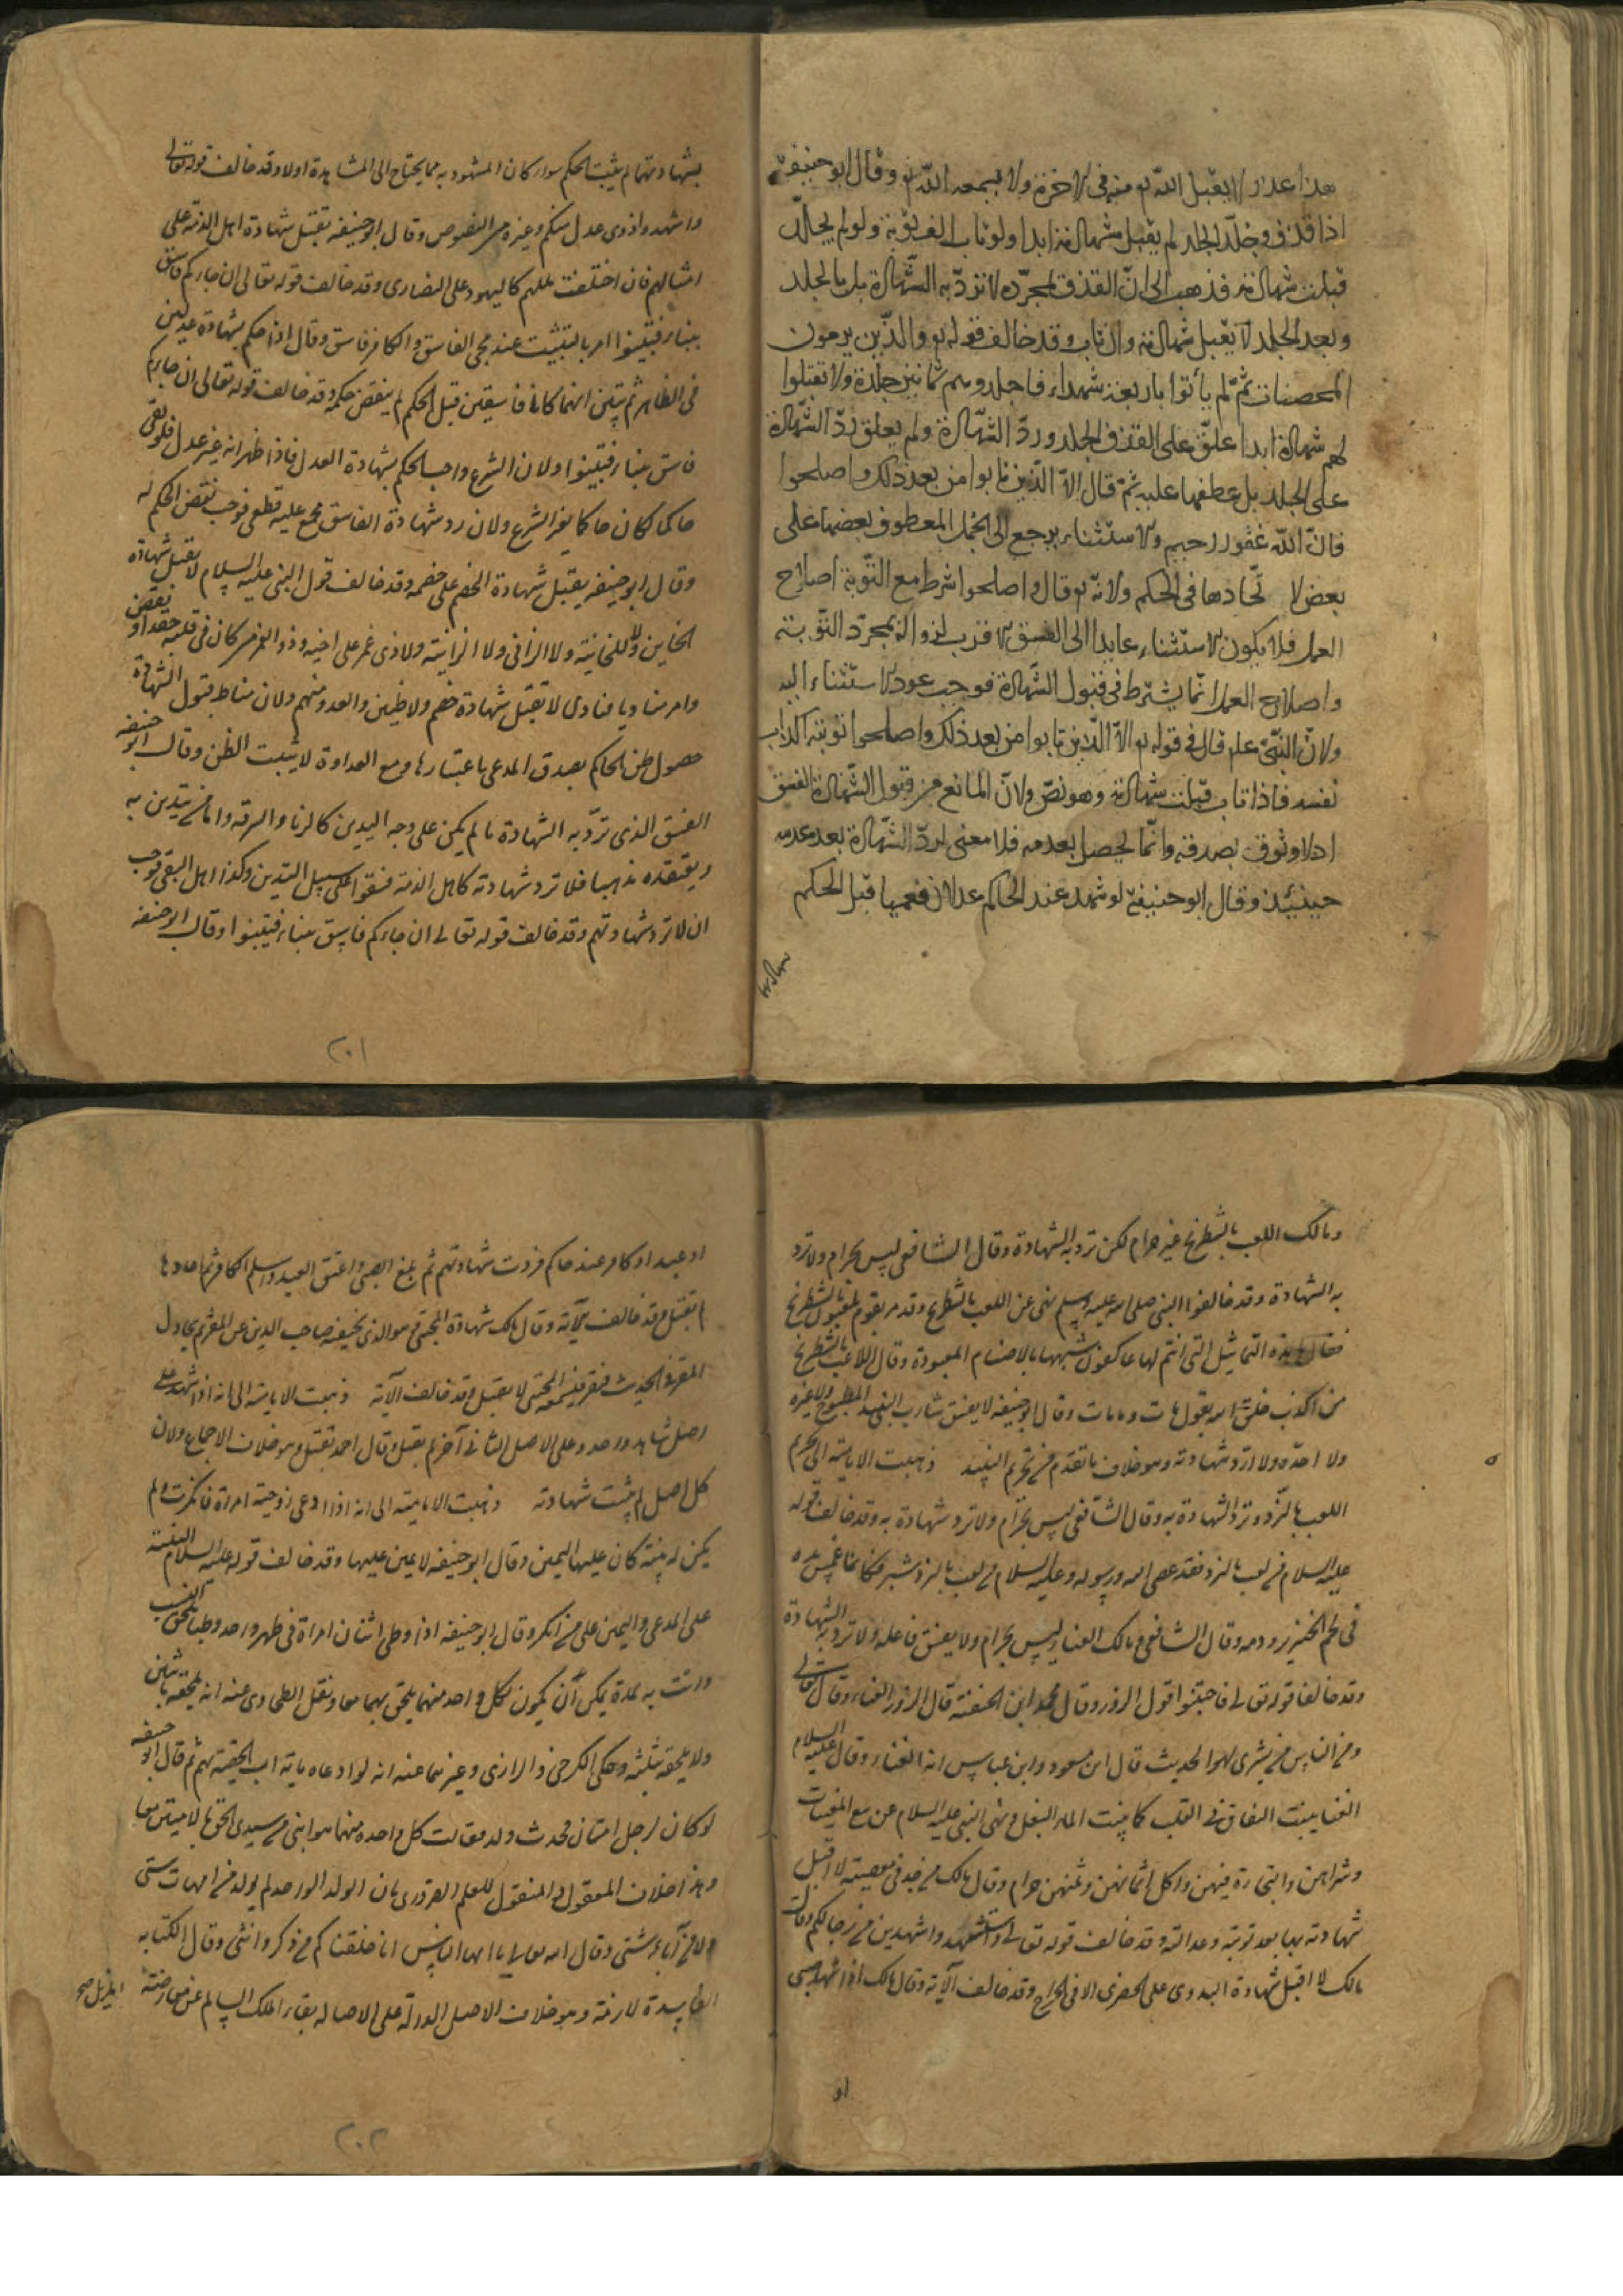 هذا عدل لا يقبل الله تع منه في الاخرة ولا يسمعه الله تع وقال ابو حنيفة
اذا قذف وجلد الجلد لم يقبل شهادته ابدا ولو تاب الف توبة ولو لم يجلد
قبلت شهادته فذهب الى ان القذف لمجرده لا ترد به الشهادة بل بالجلد
وبعد الجلد لا يقبل شهادته وان تاب وقد خالف قوله تع والذين يرمون
المحصنات ثم لم يأتوا باربعة شهداء فاجلدوهم ثمانين جلدة ولا تقبلوا
لهم شهادة ابدا علق على القذف الجلد ورد الشهادة ولم يعلق رد الشهادة
على الجلد بل عطفها عليه ثم قال الا الذين تابوا من بعد ذلك واصلحوا
فان الله غفور رحيم والاستثناء يرجع الى الجمل المعطوف بعضها على
بعض لا تحادها في الحكم ولانه تع قال واصلحوا شرط مع التوبة اصلاح
العمل فلا يكون الاستثناء عايدا الى الفسق الاقرب لزواله بمجرد التوبة
واصلاح العمل انما يشترط في قبول الشهادة فوجب عود الاستثناء اليه
ولان النبي علم قال في قوله تع الا الذين تابوا من بعد ذلك واصلحوا توبته اكذاب
نفسه فاذا تاب قبلت شهادته وهو نص ولان المانع من قبول الشهادة الفسق
اذ لا وثوق بصدقه وانما يحصل بعدمه فلا معنى لرد الشهادة بعد عدمه
حينئذ وقال ابو حنيفة لو شهد عند الحاكم عدلان فعميا قبل الحكم
بشهادتهما لم يثبت الحكم سواء كان المشهود به مما يحتاج الى المشاهدة اولا وقد خالف قوله تعالى
واشهدوا ذوى عدل منكم وغيره من النصوص وقال ابو حنيفه تقبل شهادة اهل الذمة على
امثالهم فان اختلفت مللهم كاليهود على النصارى وقد خالف قوله تعالى ان جاءكم فاسق
بنباء فتبينوا امر بالتثبت عند مجى الفاسق والكافر فاسق وقال اذا حكم بشهادة عدلين
فى الظاهر ثم تبين انهما كانا فاسقين قبل الحكم لم ينقض حكمه وقد خالف قوله تعالى ان جاءكم
فاسق بنباء فتبينوا ولان الشرع واجب الحكم بشهادة العدل فاذا ظهر انه غير عدل فلو بقى
حاكما لكان حاكما بغير الشرع ولان رد شهادة الفاسق مجمع عليه قطعى فوجب نقض الحكم له
وقال ابو حنيفه يقبل شهادة الخصم على خصمه وقد خالف قول النبى عليه السلام لا يقبل شهادة
الخاين ولا الخائنة ولا الزانى ولا الزانية ولا ذى غمر على اخيه وذو الغمر من كان فى قلبه حقد او بغض
وامر مناديا فنادى لا تقبل شهادة خصم ولا ظنين والعدو متهم ولان مناط قبول الشهادة
حصول ظن الحاكم بصدق المدعى باعتبارها ومع العداوة لا يثبت الظن وقال ابو حنيفه
الفسق الذى ترد به الشهادة ما لم يكن على وجه التدين كالزنا والسرقه واما من يتدين به
ويعتقده مذهبا فلا ترد شهادته كاهل الذمة فسقوا على سبيل التدين وكذا اهل البغى فوجب
ان لا ترد شهادتهم وقد خالف قوله تعالى ان جاءكم فاسق بنباء فتبينوا وقال ابو حنيفه
٢٠١
ومالك اللعب بالشطرنج غير حرام لكن ترد به الشهادة وقال الشافعى ليس بحرام ولا ترد
به الشهادة وقد خالفوا النبى صلى الله عليه وسلم نهى عن اللعب بالشطرنج وقد مر بقوم يلعبون بالشطرنج
فقال ما هذه التماثيل التى انتم لها عاكفون شبهها بالاصنام المعبودة وقال اللاعب بالشطرنج
من اكذب خلق الله يقول مات وما مات وقال ابو حنيفه لا يفسق شارب النبيذ المطبوخ ولا غيره
ولا احده ولا ارد شهادته وهو خلاف ما تقدم من تحريم النبيذ ذهبت الامامية الى تحريم
اللعب بالنرد وترد الشهادة به وقال الشافعى ليس بحرام ولا ترد شهادة به وقد خالف قوله
عليه السلام من لعب بالنرد فقد عصى الله ورسوله وعليه السلام من لعب بالنردشير فكانما غمس يده
فى لحم الخنزير ودمه وقال الشافعى ومالك الغناء ليس بحرام ولا يفسق فاعله ولا ترد به الشهادة
وقد خالفا قوله تعالى فاجتنبوا قول الزور وقال محمد ابن الحنفية قال الزور الغناء وقال تعالى
ومن الناس من يشترى لهو الحديث قال ابن مسعود وابن عباس انه الغناء وقال عليه السلام
الغنا ينبت النفاق فى القلب كما ينبت الماء البقل ونهى النبى عليه السلام عن بيع المغنيات
وشراهن والتجارة فيهن واكل اثمانهن وثمنهن حرام وقال مالك من حد فى معصية لا اقبل
شهادته بها بعد توبته وعدالته وقد خالف قوله تعالى واستشهدوا شهيدين من رجالكم وقال
مالك لا اقبل شهادة البدوى على الحضرى الا فى الجراح وقد خالف الآية وقال مالك اذا شهد صبى
او
او عبد او كافر عند حاكم فردت شهادتهم ثم بلغ الصبى واعتق العبد واسلم الكافر ثم اعادها
لم تقبل وقد خالف الآية وقال مالك شهادة المختبى وهو الذى يخفيه صاحب الدين عن المقر ثم يحاول
المقر فى الحديث فيقر فيسمعه المختبى لا يقبل وقد خالف الآية ذهبت الامامية الى انه اذا شهد على
اصل شاهد واحد وعلى الاصل الثانى آخر لم يقبل وقال احمد تقبل وهو خلاف الاجماع ولان
كل اصل لم يثبت شهادته ذهبت الامامية الى انه اذا ادعى زوجية امراة فانكرت ولم
يكن له بينة كان عليها اليمين وقال ابو حنيفه لا يمين عليها وقد خالف قوله عليه السلام البينة
على المدعى واليمين على من انكر وقال ابو حنيفه اذا وطى اثنان امراة فى طهر واحد وطيا يلحق به النسب
واتت به لمدة يمكن ان يكون لكل واحد منهما يلحق بهما معا ونقل الطحاوى عنه انه يلحقه باثنين
ولا يلحقه بثلثه وحكى الكرخى والرازى وغيرهما عنه انه لو ادعاه ماية اب الحقته بهم ثم قال ابو حنيفه
لو كان لرجل امتان فحدث ولد فقالت كل واحده منهما هو ابنى من سيدى الحق بالامتين معا
وهذا خلاف المعقول والمنقول للعلم الضرورى بان الولد الواحد لم يولد من امهات شتى
ولا من آباء شتى وقال الله تعالى يا ايها الناس انا خلقناكم من ذكر وانثى وقال الكتابه
الفاسدة لازمة وهو خلاف الاصل الدالة على الاصاله بقاء الملك السالم عن معارضته
٢٠٢